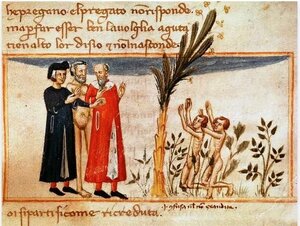 he pregano elpregato norisponde.
mapfar esser ben lavoglia aguta
tien alto lor disio & nolnasconde.
oi siparti sicome ricreduta.